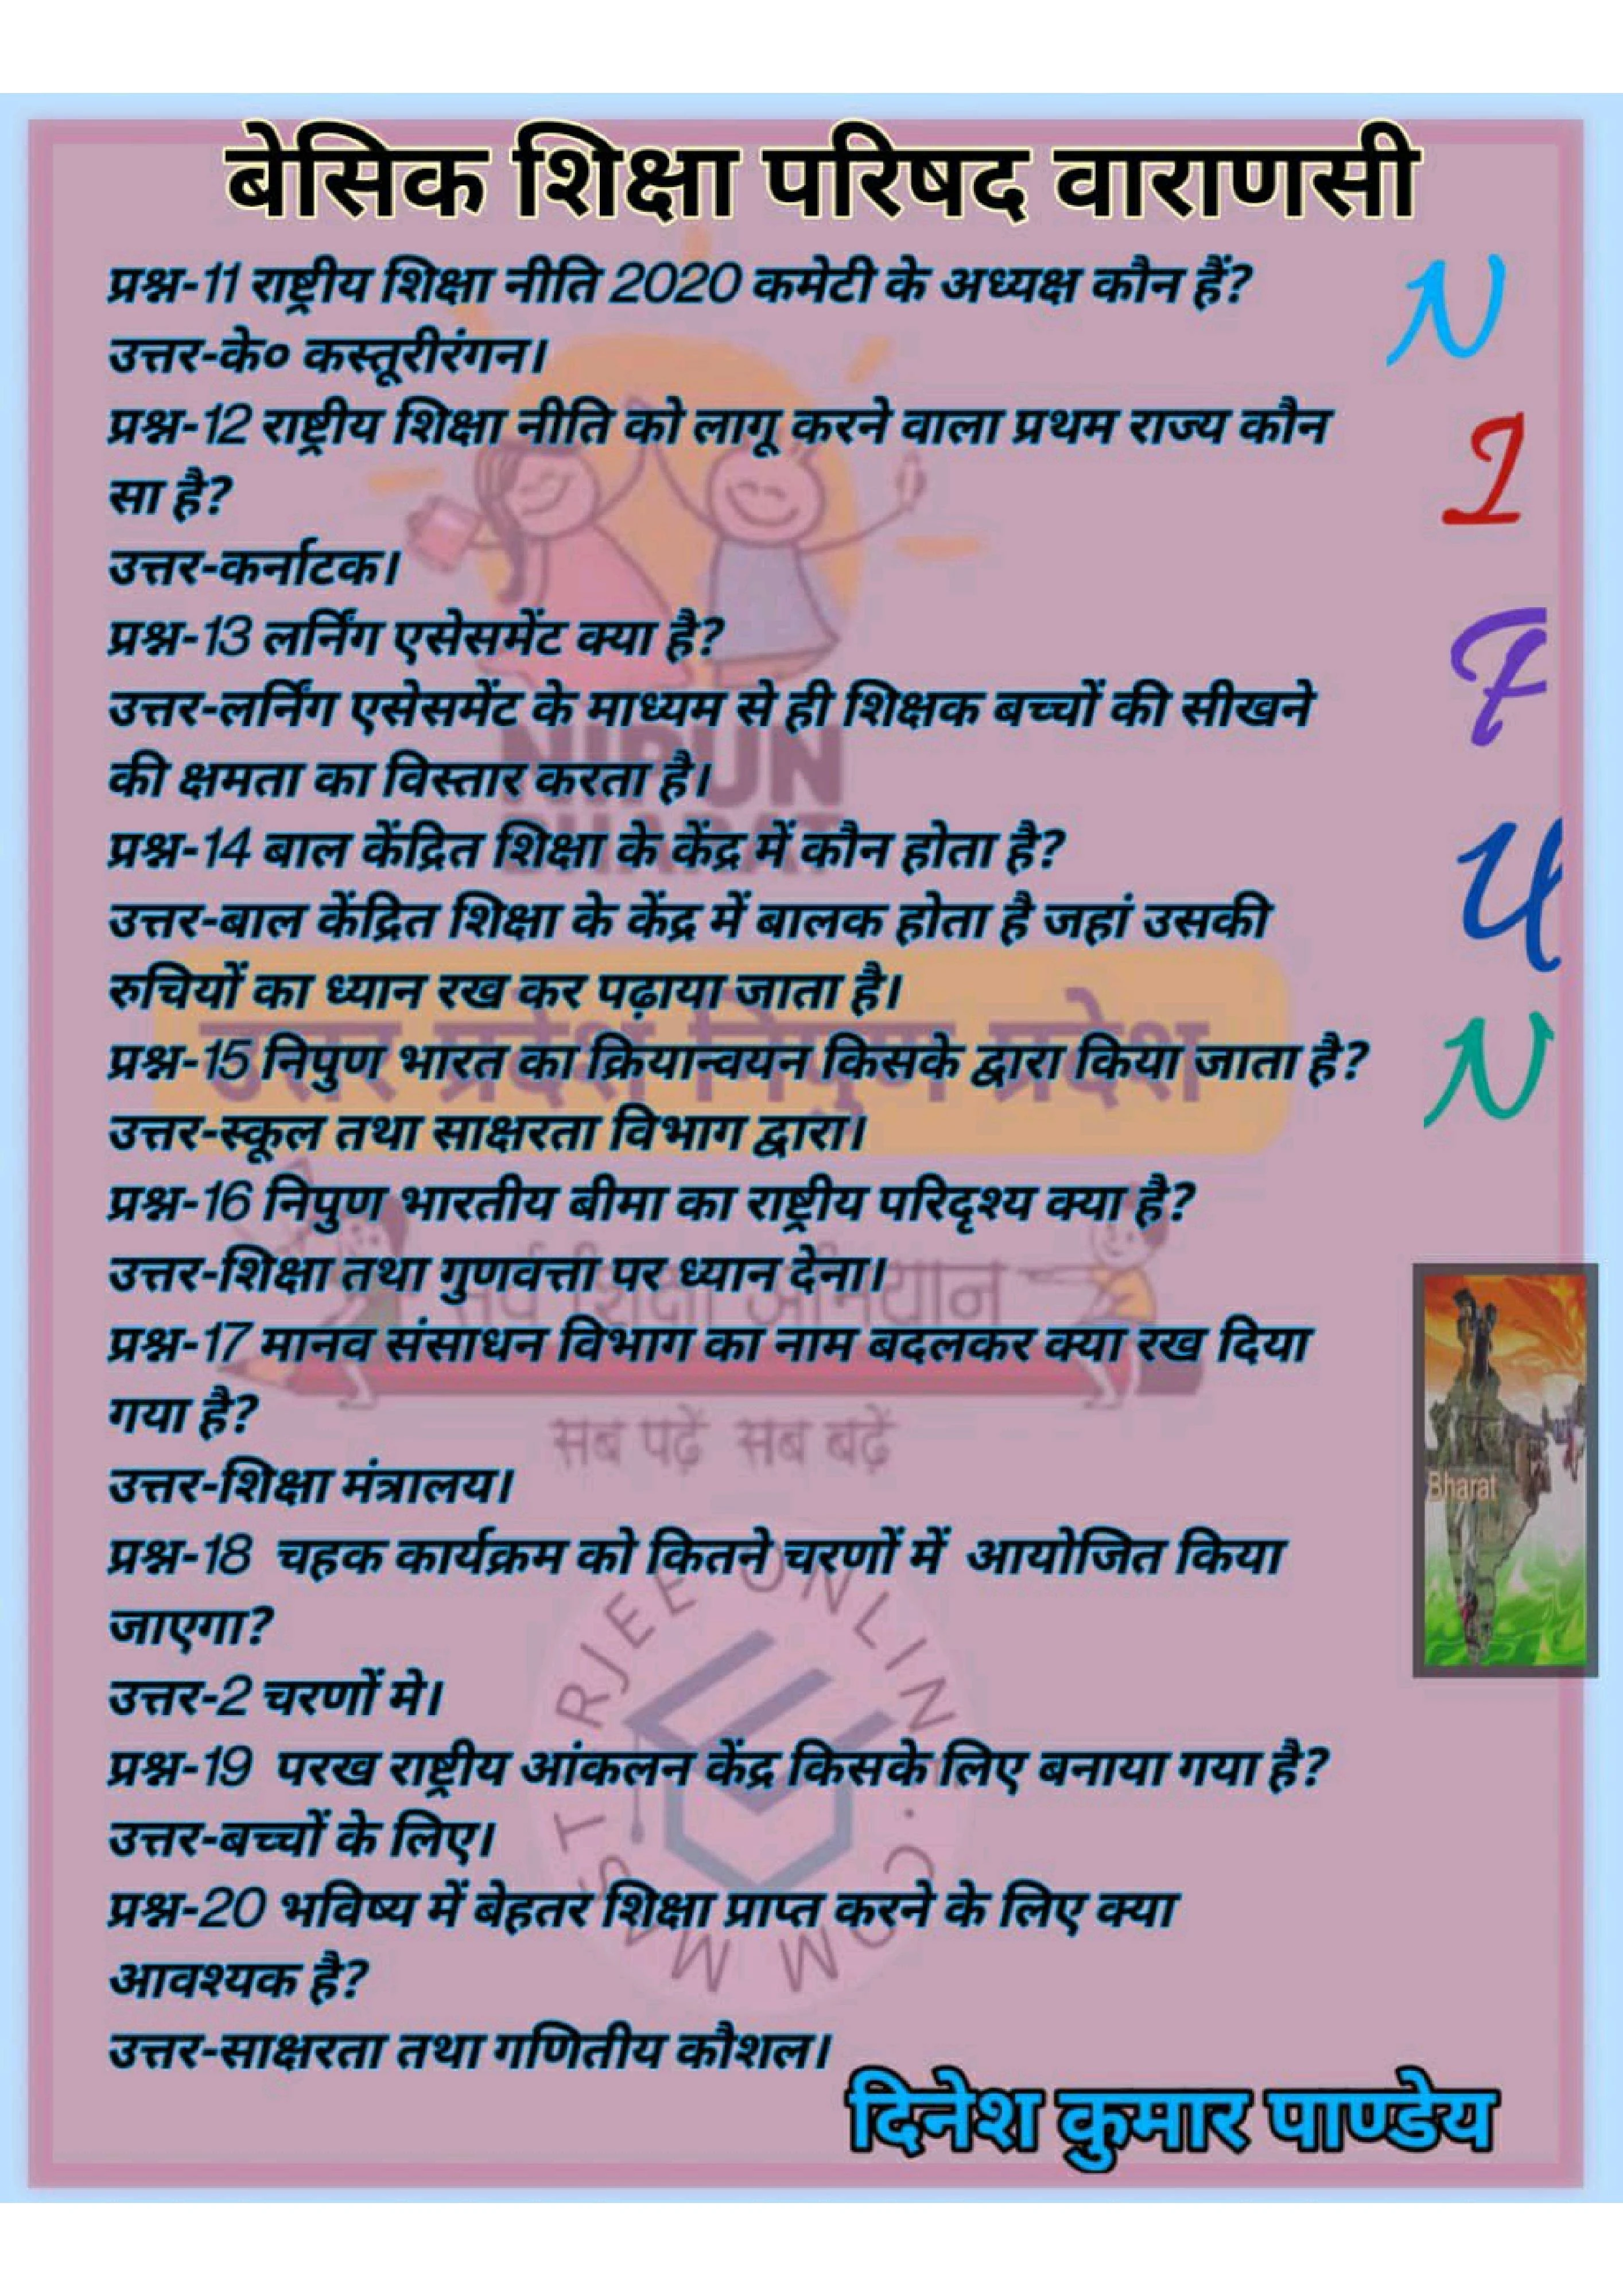 बेसिक शिक्षा परिषद वाराणसी
प्रश्न-11 राष्ट्रीय शिक्षा नीति 2020 कमेटी के अध्यक्ष कौन हैं?
उत्तर-के० कस्तूरीरंगन।
प्रश्न-12 राष्ट्रीय शिक्षा नीति को लागू करने वाला प्रथम राज्य कौन
सा है?
उत्तर-कर्नाटक।
प्रश्न-13 लर्निंग एसेसमेंट क्या है?
उत्तर-लर्निंग एसेसमेंट के माध्यम से ही शिक्षक बच्चों की सीखने
की क्षमता का विस्तार करता है।
प्रश्न-14 बाल केंद्रित शिक्षा के केंद्र में कौन होता है?
उत्तर-बाल केंद्रित शिक्षा के केंद्र में बालक होता है जहां उसकी
रुचियों का ध्यान रख कर पढ़ाया जाता है।
प्रश्न-15 निपुण भारत का क्रियान्वयन किसके द्वारा किया जाता है?
उत्तर-स्कूल तथा साक्षरता विभाग द्वारा।
प्रश्न-16 निपुण भारतीय बीमा का राष्ट्रीय परिदृश्य क्या है?
उत्तर-शिक्षा तथा गुणवत्ता पर ध्यान देना।
प्रश्न-17 मानव संसाधन विभाग का नाम बदलकर क्या रख दिया
गया है?
उत्तर-शिक्षा मंत्रालय।
प्रश्न-18 चहक कार्यक्रम को कितने चरणों में आयोजित किया
जाएगा?
उत्तर-2 चरणों मे।
प्रश्न-19 परख राष्ट्रीय आंकलन केंद्र किसके लिए बनाया गया है?
उत्तर-बच्चों के लिए।
प्रश्न-20 भविष्य में बेहतर शिक्षा प्राप्त करने के लिए क्या
आवश्यक है?
उत्तर-साक्षरता तथा गणितीय कौशल।
दिनेश कुमार पाण्डेय
N
I
P
U
N
Bharat
NIPUN
BHARAT
उत्तर प्रदेश निपुण प्रदेश
सर्व शिक्षा अभियान
सब पढ़ें सब बढ़ें
MASTERJEE ONLINE.COM